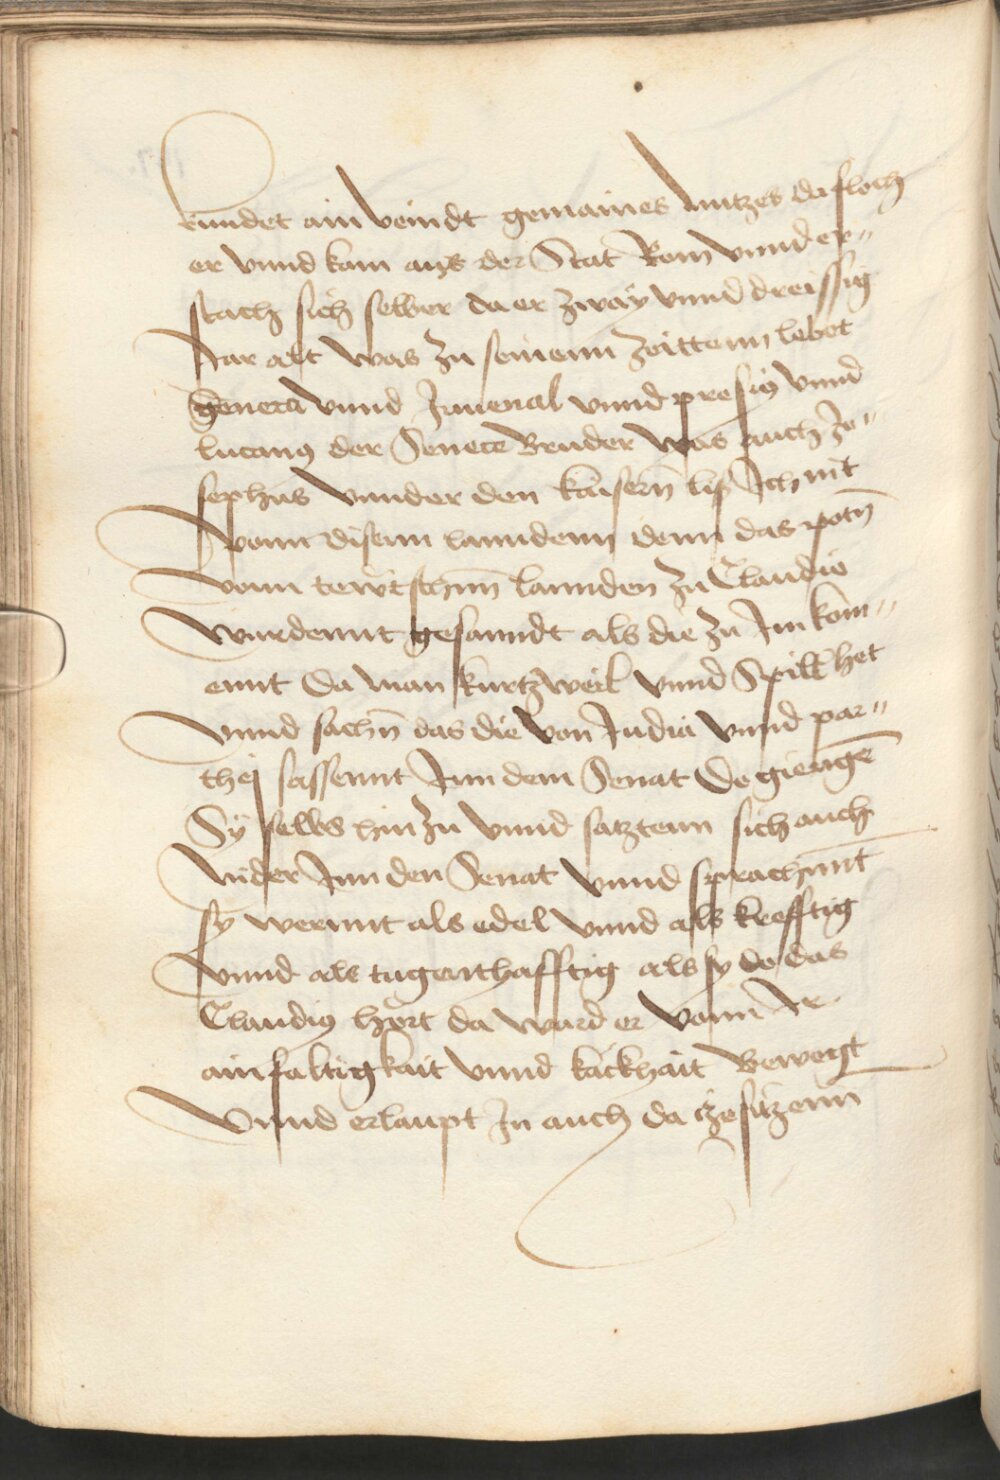 kundet ain veindt gemaines nutzes da floch
er vnnd kam auß der Stat Rom vnnd er„
stach sich selber da er zway vnnd dreissig
Jar alt was zu seinenn zeittenn lebet
Seneca vnnd Juuenal vnnd presius vnnd
lucanus der Senece Bruder was auch Jo„
sephus vnnder den kaisern̄ liß Jch nit
vonn disenn lanndenn denn das potn̄
vonn tewtschnn̄ lannden zu Claudio
wurdennt gesanndt als die zu Jm kom„
ennt da man kurtzweil vnnd Spill het
vnnd sachn̄ das die von Judia vnnd par„
thej sassennt Jnn dem Senat Do gienge̅
Sÿ selbs hin zu vnnd satztenn sich auch
nider Jnn den Senat vnnd sprachnn̄t
sy wernnt als edel vnnd als krefftig
vnnd als tugenthafftig als sy do das
Claudius hort da ward er vonn Jr
ainfaltigkait vnnd kackhait Bewegt
vnnd erlaupt Jn auch da zesitzenn